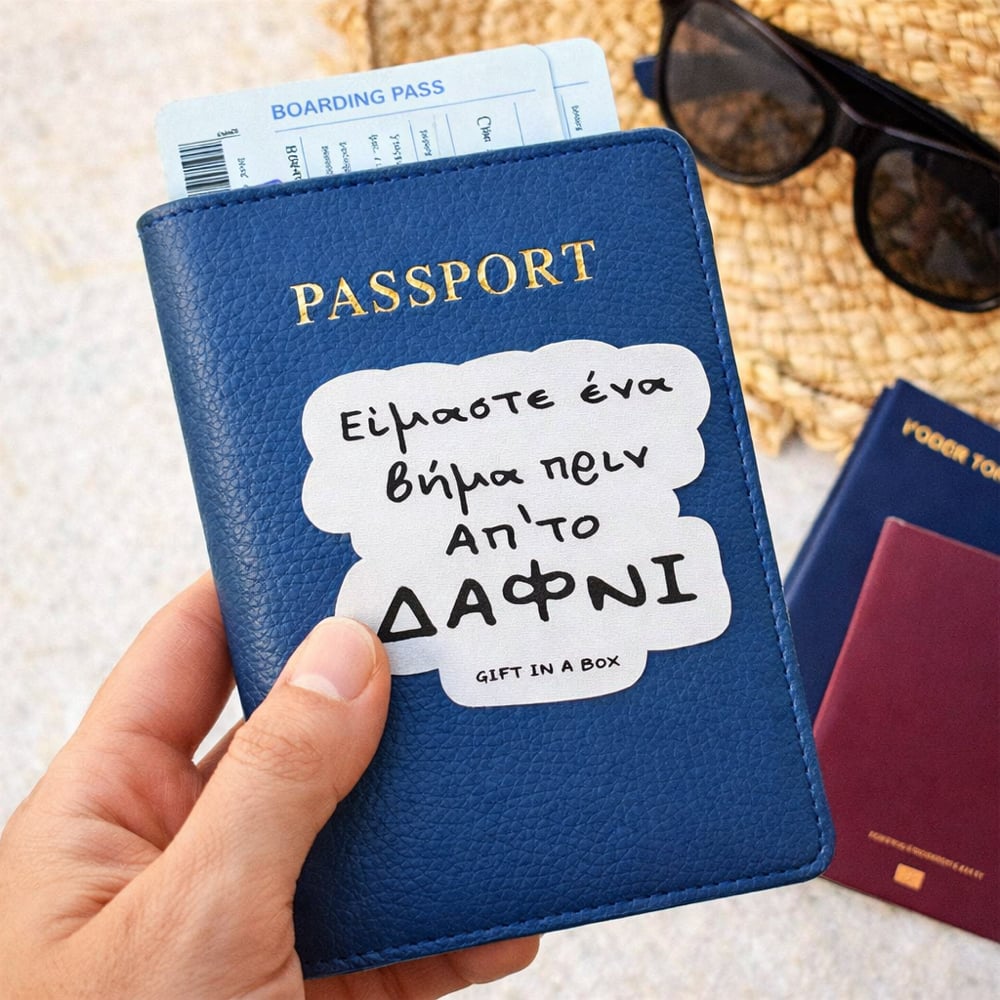 BOARDING PASS
PASSPORT
Είμαστε ένα
βήμα πριν
Απ'το
ΔΑΦΝΙ
GIFT IN A BOX